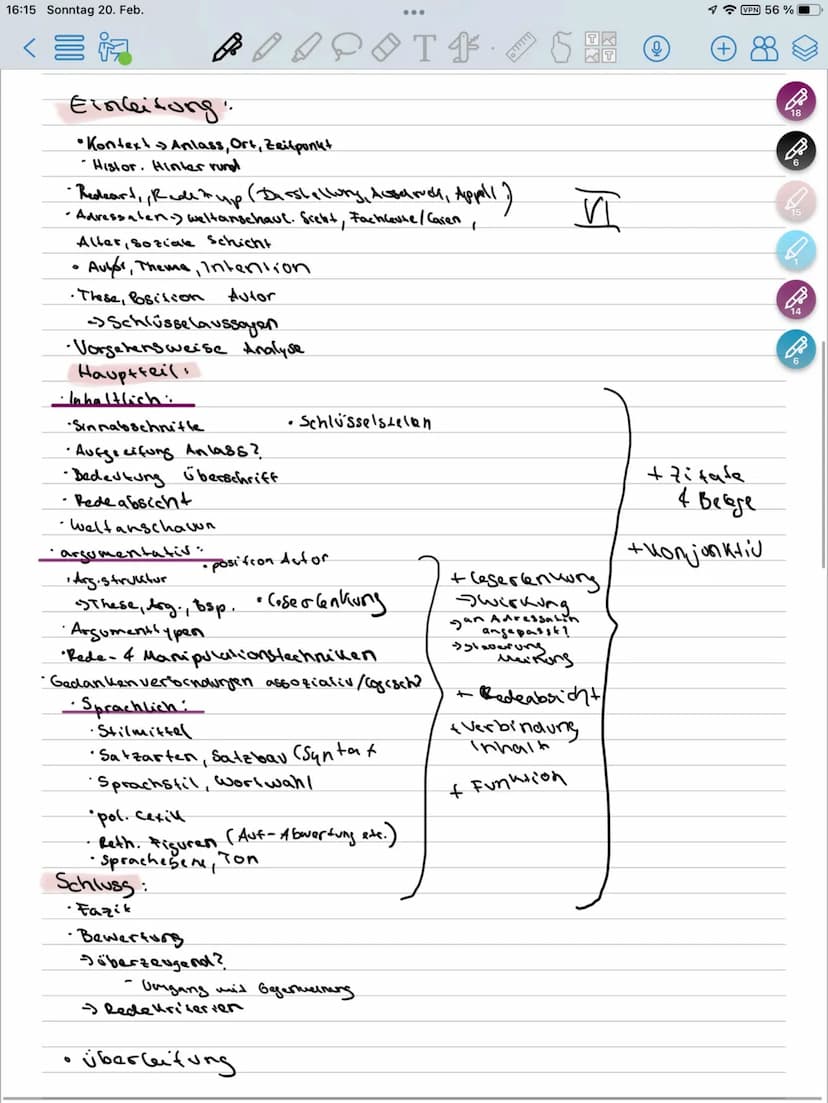 16:15 Sonntag 20. Feb.
VPN 56 %
Einleitung:
• Kontext → Anlass, Ort, Zeitpunkt
- Histor. Hinter rund
• Redeart, (Darstellung, Ausdruck, Appell?)
• Adressaten → weltanschaul. Sicht, Fachleute/Laien,
Alter, soziale Schicht
• Autor, Thema, Intention
• These, Position Autor
→ Schlüsselaussagen
• Vorgehensweise Analyse
VI
Hauptteil:
• Inhaltlich:
• Sinnabschnitte
• Schlüsselstellen
• Aufgreifung Anlass?
• Bedeutung Überschrift
• Redeabsicht
• Weltanschauun
• argumentativ:
• Position Autor
• Arg.struktur
→ These, Arg., Bsp.
• Leserlenkung
• Argumenttypen
• Rede- & Manipulationstechniken
• Gedankenverbindungen assoziativ/logisch?
• Sprachlich:
• Stilmittel
• Satzarten, Satzbau (Syntax
• Sprachstil, Wortwahl
• pol. Lexik
• Reth. Figuren (Auf-Abwertung etc.)
• Sprachebene, Ton
+ Leserlenkung
→ Wirkung
→ an Adressaten
angepasst?
→ Steuerung
Meinung
+ Redeabsicht
+ Verbindung
Inhalt
+ Funktion
+ Zitate
& Belege
+ Konjunktiv
Schluss:
• Fazit
• Bewertung
→ überzeugend?
- Umgang mit Gegenmeinung
→ Redekriterien
• Überleitung
18
6
15
1
14
6